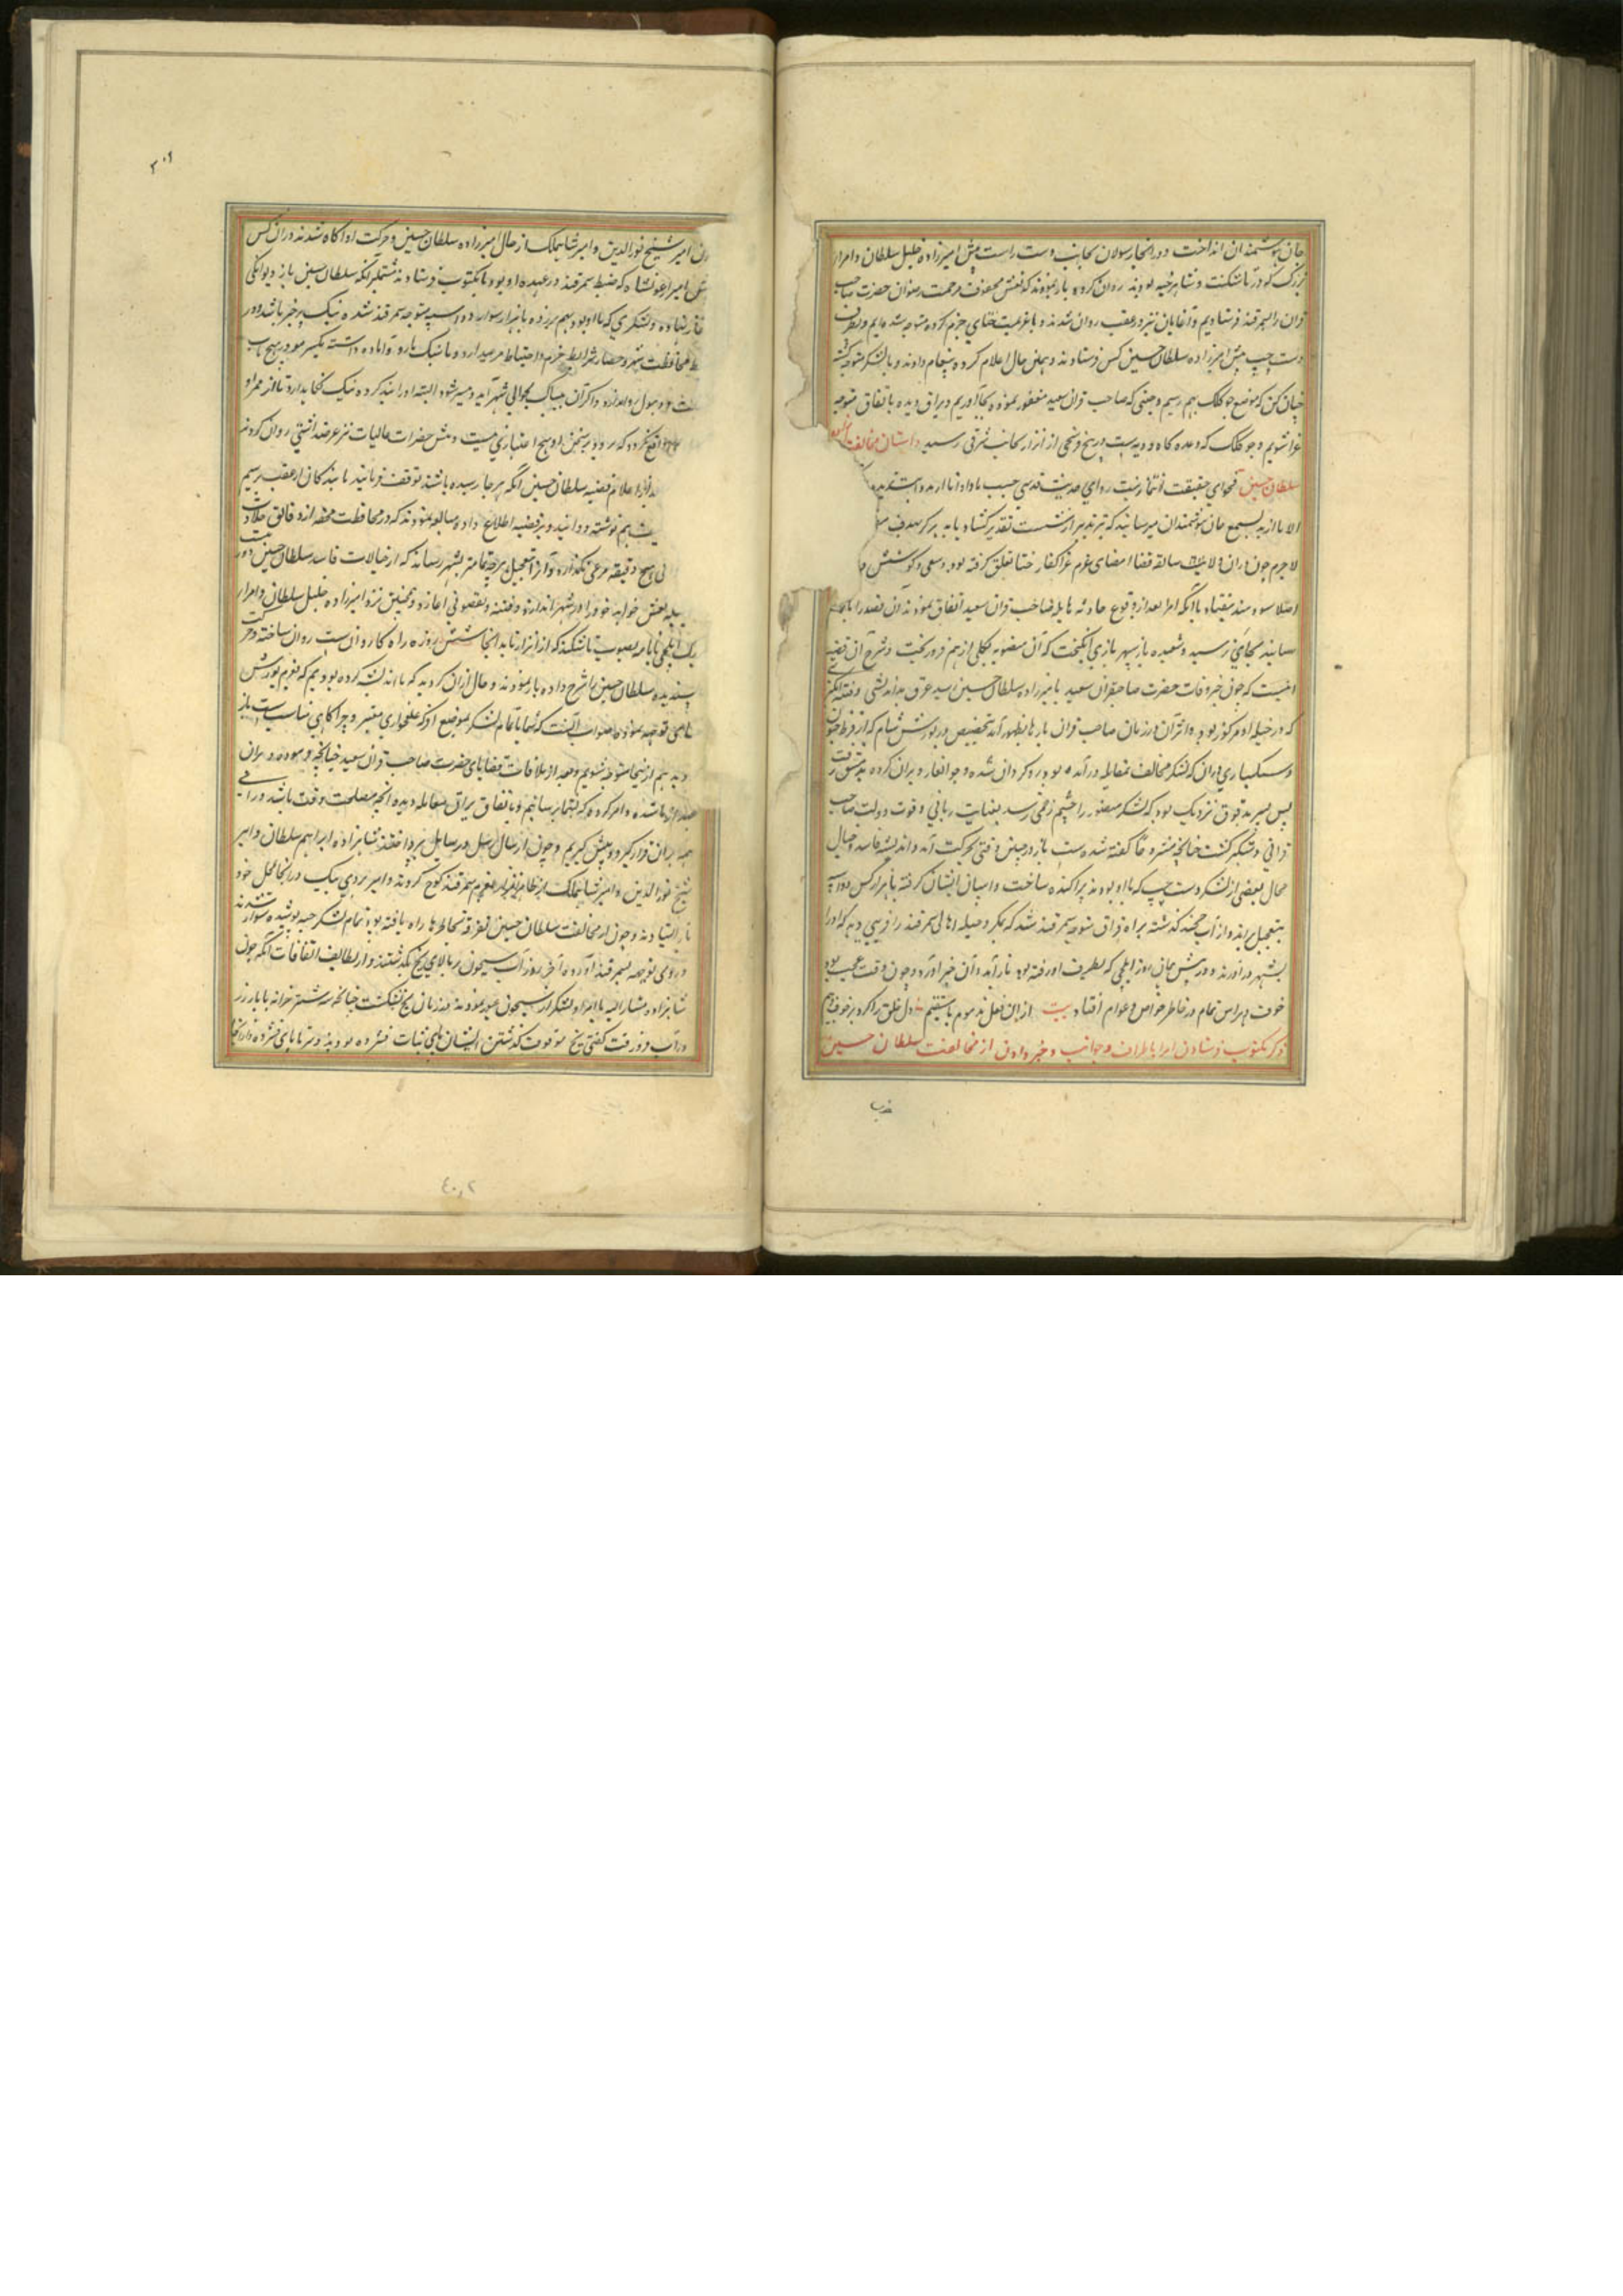 جان هوشمندان انداخت و در انجا رسولان بجانب دست راست پیش امیرزاده خلیل سلطان و امراء
بزرگ که در تاشکنت و شاهرخیه بودند روان کردند باز نمودند که نعش محفوف مرحمت و رضوان حضرت صاحب
قران را بسمرقند فرستادیم و آغایان نیز در عقب روان شدند و ما بعزیمت ختای جزم کرده متوجه شده ایم و بطرف
دست چپ پیش امیرزاده سلطان حسین کس فرستادند و بهمین حال اعلام کرده پیغام دادند و با لشکر متوجه شده
چنان کن که بموضع جوکلک بهم رسیم و چنین که صاحب قران سعید مغفور نموده بجا آوریم و یراق دیده باتفاق متوجه
غزا شویم و جوکلک که وعده گاه و دیه ست در پنج فرسخی از اترار بجانب شرقی رسید داستان مخالفت
سلطان حسین فحوای حقیقت انتمای حدیث قدسی حسب یا داود انا ارید و انت ترید
الا ما ارید بسمع جان هوشمندان میرساند که تیر تدبیر از شست تقدیر گشاد یابد بر هدف
لاجرم چون دران ولا سابقه قضا امضای عزم غزا کفار ختا تعلق نگرفته بود سعی و کوشش
اصلا سودمند نیفتاد با آنکه امرا بعد از وقوع حادثه هایله صاحب قران سعید اتفاق نمودند آن قصد را
رسانند بجای نرسید و شعبده باز سپهر بازی انگیخت که آن منصوبه بکلی از هم فروریخت و شرح آن قضیه
آنست که چون خبر وفات حضرت صاحبقران سعید بامیرزاده سلطان حسین رسید عرق بداندیشی و فتنه انگیزی
که در جبله او مرکوز بود و اثر آن در زمان صاحب قران بارها بظهور آمد بتخصیص در یورش شام که از فرط جنون
و سبکساری دران که لشکر مخالف بمقابله درآمده بود رو گردان شده و جوانغار ویران کرده بدمشق رفت
پس بسر بدقوق نزدیک بود که لشکر منصور را چشم زخمی رسد بعنایت ربانی و قوت دولت صاحب
قرانی دستگیر گشت چنانچه مشروحا گفته شده ست باز در چنین وقتی بحرکت آمد و اندیشه فاسد و خیال
محال بعضی از لشکر دست چپ که با او بودند پراکنده ساخت و اسپان ایشان گرفته با هزار کس دو اسپه
بتعجیل براند و از آب خجند گذشته براه قزاق متوجه سمرقند شد که بمکر و حیله اهالی سمرقند را فریبی دهد که او را
بشهر درآورند و در پیش میان روز ایلچی که بطرف او رفته بود باز آمد و آن خبر آورد و چون وقت عجیب بود
خوف و هراس تمام در خاطر خواص و عوام افتاد بیت از این فعل مذموم نامستقیم دل خلق را کرد پر خوف و بیم
ذکر مکتوب فرستادن امرا باطراف و جوانب و خبر دادن از مخالفت سلطان حسین
۲۰۹
امیر شیخ نورالدین و امیر شاهملک از حال امیرزاده سلطان حسین و حرکت او آگاه شدند دران کس
پیش امیر ارغونشاه که ضبط سمرقند در عهده او بود با مکتوب فرستادند مشتمل بر آنکه سلطان حسین باز دیوانگی
آغاز نهاده و لشکری که با او بود بهم برزده با هزار سوار دو اسپه متوجه سمرقند شده نیک بر خبر باشد و در
محافظت شهر و حصار شرایط حزم و احتیاط مرعی دارد و ما نیک بارو آماده داشته بکسر مو در هیچ باب
و اهمال روا ندارد و اگر آن بیباک بحوالی شهر آید و میسر شود البته او را بند کرده نیک نگاهدارد تا از ممر او
واقع نگردد که بر و بر سخن او هیچ اعتباری نیست و پیش حضرات عالیات نیز عرضداشتی روان کردند
اعلام قضیه سلطان حسین آنکه هر جا رسیده باشند توقف فرمایند تا بندگان از عقب برسیم
هم نوشته دوانید و بر قضیه اطلاع داده مبالغه نمودند که در محافظت محفه از دقایق جلادت
هیچ دقیقه مرعی نگذارد و آنرا بتعجیل هرچه تمامتر بشهر رساند که از خیالات فاسد سلطان حسین دور نیست
نعش خواهد خود را در شهر اندازد و فتنه و تعصبی آغازد و همچنین نزد امیرزاده خلیل سلطان و امراء
یک ایلچی با نامه بصوب تاشکند که از اترار تا بدانجا شش روزه راه کاروان ست روان ساخته و حرکت
پسندیده سلطان حسین را شرح داده باز نمودند و حال از ان گردید که ما اندیشه کرده بودیم که بعزم یورش
توجه نمود و صواب آنست که شما با تمام لشکر بموضع اوکه علفخواری معتبر و چراگاهی مناسب ست باز
دید هم از اینجا متوجه شویم و بعد از ملاقات قضایای حضرت صاحب قران سعید چنانچه فرموده و بران
باشد و امر کرده که بشما رسانیم و باتفاق یراق معامله دیده انچه مصلحت وقت باشد و رای
همه بران قرار گیرد پیش گیریم و چون از ارسال رسل و رسایل بپرداختند شاهزاده ابراهیم سلطان و امیر
شیخ نورالدین و امیر شاهملک از ظاهر اترار بعزم سمرقند کوچ کردند و امیر بردی بیک در انجا محل خود
باز ایستادند و چون از مخالفت سلطان حسین تفرقه بخاطرها راه یافته بود تمام لشکر جبه پوشیده سوار شدند
و روی توجه بسمرقند آورده آخر روز آب سیحون بر بالای یخ بگذشتند و از لطایف اتفاقات آنکه چون
شاهزاده مشارالیه با امرا و لشکر از سیحون عبور نمودند در زمان یخ بشکست چنانچه سه شتر خزانه با بار زر
در آب فرو رفت گفتی یخ موقوف گذشتن ایشان پای ثبات فشرده بودند